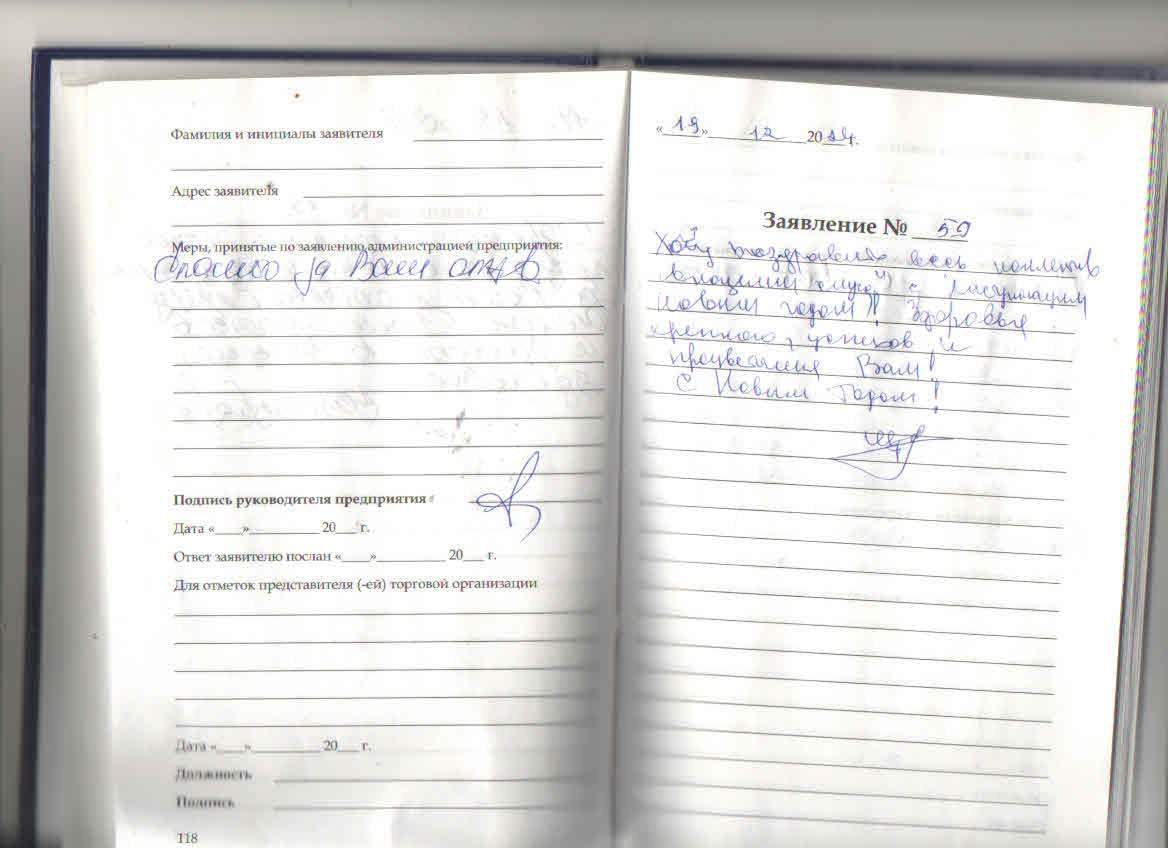 Фамилия и инициалы заявителя
Адрес заявителя
Меры, принятые по заявлению администрацией предприятия:
Спасибо за Ваш отзыв
Подпись руководителя предприятия
Дата «___»__________ 20___ г.
Ответ заявителю послан «____»__________ 20___ г.
Для отметок представителя (-ей) торговой организации
Дата «____»__________ 20___ г.
Должность
Подпись
118
«19» 12 20 г.
Заявление № 59
Хочу поздравить весь коллектив
с наступающим
новым годом!! Здоровья
крепкого, успехов и
процветания Вам!
С Новым Годом!